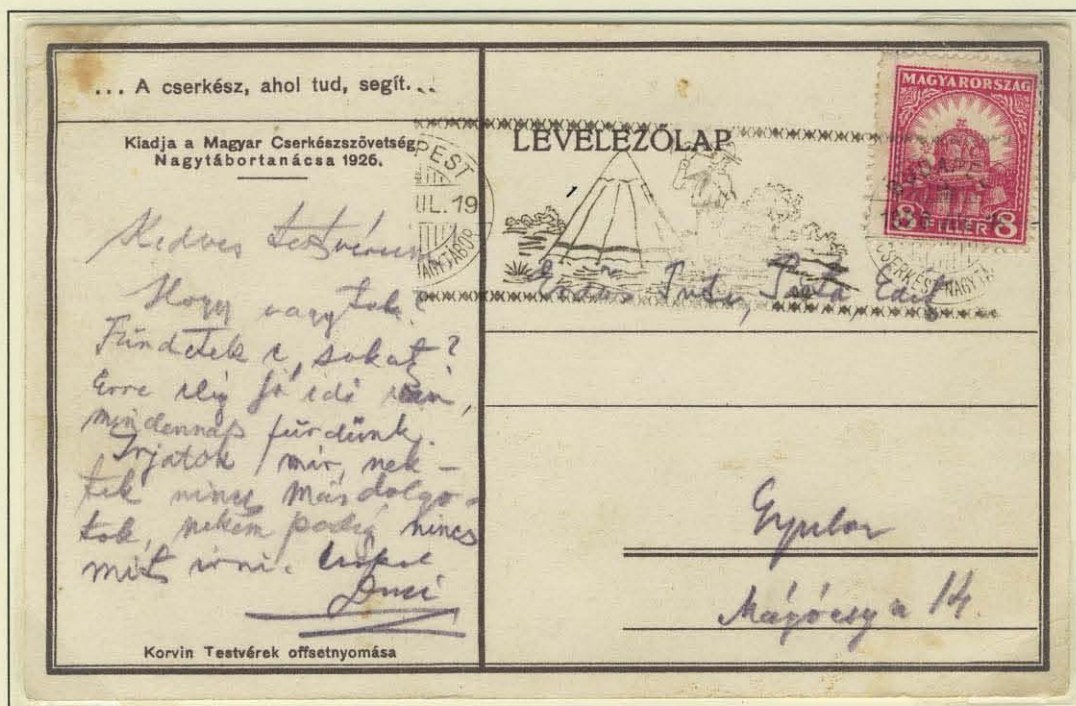 ... A cserkész, ahol tud, segít...
Kiadja a Magyar Cserkészszövetség
Nagytábortanácsa 1926.
Kedves testvéreim
Hogy vagytok?
sokat?
Erre elég jó idő van,
mindennap fürdünk.
Irjatok már, nek-
tek nincs más dolgo-
tok, nekem pedig nincs
mit irni. Csókol
Duci
Korvin Testvérek offsetnyomása
LEVELEZŐLAP
PEST
UL. 19
MAGYARORSZÁG
8 FILLÉR 8
CSERKÉSZ NAGYTÁ
Edit
Mágócsy u 14.